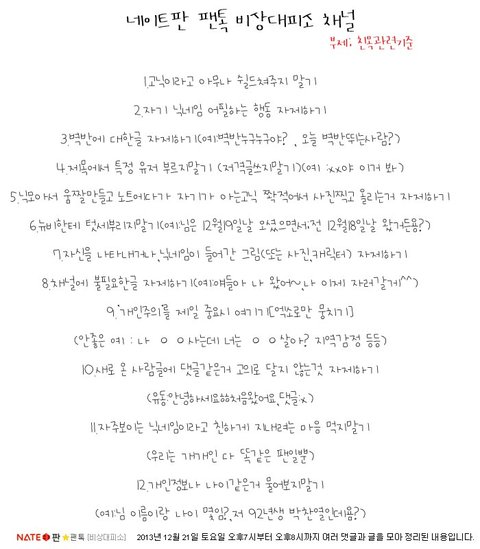 네이트판 팬톡 비상대피소 채널
부제: 친목관련기준
1.고닉이라고 아무나 쉴드쳐주지 말기
2.자기 닉네임 어필하는 행동 자제하기
3.벽반에 대한글 자제하기(예:벽반누구누구야? , 오늘 벽반뛰는사람?)
4.제목에서 특정 유저 부르지말기 (저격글쓰지말기)(예 :xx야 이거 봐)
5.닉모아서 움짤만들고 노트에다가 자기가 아는고닉 쫙적어서 사진찍고 올리는거 자제하기
6.뉴비한테 텃세부리지말기(예:님은 12월19일날 오셨으면서;전 12월18일날 왔거든용?)
7.자신을 나타내거나,닉네임이 들어간 그림(또는 사진,캐릭터) 자제하기
8.채널에 불필요한글 자제하기(예:얘들아 나 왔어~,나 이제 자러갈게^^)
9.'개인주의'를 제일 중요시 여기기[엑소로만 뭉치기]
(안좋은 예 : 나 ㅇㅇ사는데 너는 ㅇㅇ살아? 지역감정 등등)
10.새로 온 사람글에 댓글같은거 고의로 달지 않는것 자제하기
(유동:안녕하세요ㅎㅎ처음왔어요,댓글:x)
11.자주보이는 닉네임이라고 친하게 지내려는 마음 먹지말기
(우리는 개개인 다 똑같은 팬일뿐)
12.개인정보나 나이같은거 물어보지말기
(예:님 이름이랑 나이 몇임?,저 92년생 박찬열인데욤?)
NATE 판 ★팬톡 [비상대피소] 2013년 12월 21일 토요일 오후7시부터 오후8시까지 여러 댓글과 글을 모아 정리된 내용입니다.